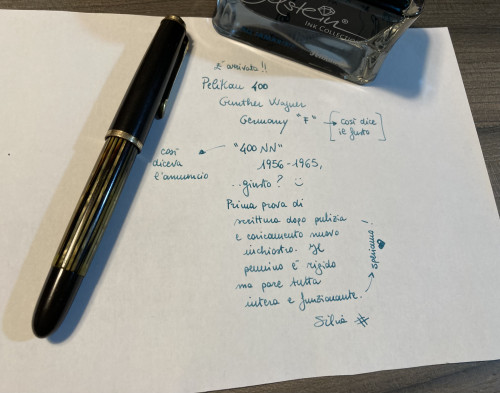 Edelstein®
INK COLLECTION
È arrivata!!
Pelikan 400
Gunther Wagner
Germany "F" → [così dice
il fusto]
così
diceva
l'annuncio
"400 NN"
1956-1965,
..giusto? :)
Prima prova di
scrittura dopo pulizia
e caricamento nuovo
inchiostro. Il
pennino è rigido
ma pare tutta
intera e funzionante.
→ speriamo!
Silvia #